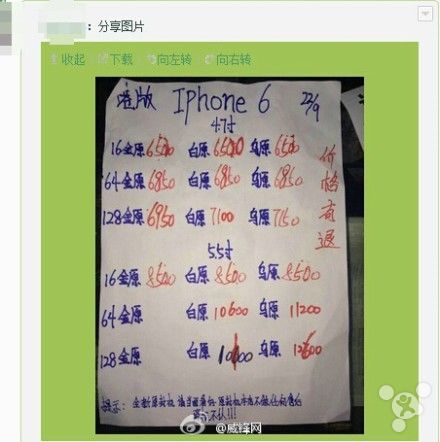 ：分享图片
收起 下载 向左转 向右转
港版 Iphone 6 22/9
4.7寸
16金原6500 白原6500 乌原6500
64金原6850 白原6850 乌原6850
128金原6950 白原7100 乌原7150
价格奇退
5.5寸
16金原8500 白原8500 乌原8500
64金原 白原10600 乌原11200
128金原 白原 乌原
提示：
@威锋网